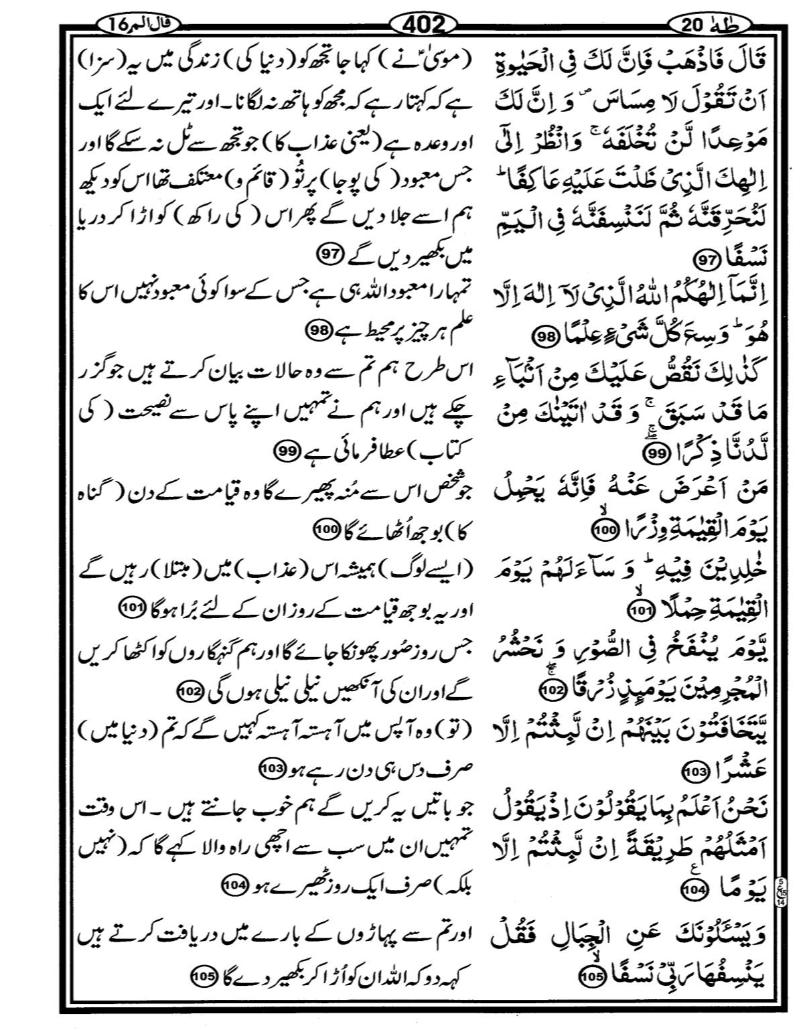 طٰهٰ 20
402
قال الم 16
قَالَ فَاذْهَبْ فَاِنَّ لَكَ فِی الْحَیٰوةِ
اَنْ تَقُوْلَ لَا مِسَاسَ ۪ وَ اِنَّ لَكَ
مَوْعِدًا لَّنْ تُخْلَفَهٗ ۚ وَانْظُرْ اِلٰۤی
اِلٰهِكَ الَّذِیْ ظَلْتَ عَلَیْهِ عَاكِفًا ؕ
لَنُحَرِّقَنَّهٗ ثُمَّ لَنَنْسِفَنَّهٗ فِی الْیَمِّ
نَسْفًا 97
اِنَّمَاۤ اِلٰهُكُمُ اللّٰهُ الَّذِیْ لَاۤ اِلٰهَ اِلَّا
هُوَ ؕ وَسِعَ كُلَّ شَیْءٍ عِلْمًا 98
كَذٰلِكَ نَقُصُّ عَلَیْكَ مِنْ اَنْۢبَآءِ
مَا قَدْ سَبَقَ ۚ وَ قَدْ اٰتَیْنٰكَ مِنْ
لَّدُنَّا ذِكْرًا ۖۚ 99
مَنْ اَعْرَضَ عَنْهُ فَاِنَّهٗ یَحْمِلُ
یَوْمَ الْقِیٰمَةِ وِزْرًا ۙ 100
خٰلِدِیْنَ فِیْهِ ؕ وَ سَآءَ لَهُمْ یَوْمَ
الْقِیٰمَةِ حِمْلًا ۙ 101
یَّوْمَ یُنْفَخُ فِی الصُّوْرِ وَ نَحْشُرُ
الْمُجْرِمِیْنَ یَوْمَىِٕذٍ زُرْقًا ۚۖ 102
یَّتَخَافَتُوْنَ بَیْنَهُمْ اِنْ لَّبِثْتُمْ اِلَّا
عَشْرًا 103
نَحْنُ اَعْلَمُ بِمَا یَقُوْلُوْنَ اِذْ یَقُوْلُ
اَمْثَلُهُمْ طَرِیْقَةً اِنْ لَّبِثْتُمْ اِلَّا
یَوْمًا ع 104
وَیَسْـَٔلُوْنَكَ عَنِ الْجِبَالِ فَقُلْ
یَنْسِفُهَا رَبِّیْ نَسْفًا ۙ 105
(موسیٰؑ نے) کہا جا تجھ کو (دنیا کی) زندگی میں یہ (سزا)
ہے کہ کہتا رہے کہ مجھ کو ہاتھ نہ لگانا۔ اور تیرے لئے ایک
اور وعدہ ہے (یعنی عذاب کا) جو تجھ سے ٹل نہ سکے گا اور
جس معبود (کی پوجا) پر تُو (قائم و) معتکف تھا اس کو دیکھ
ہم اسے جلا دیں گے پھر اس (کی راکھ) کو اڑا کر دریا
میں بکھیر دیں گے 97
تمہارا معبود اللہ ہی ہے جس کے سوا کوئی معبود نہیں اس کا
علم ہر چیز پر محیط ہے 98
اس طرح ہم تم سے وہ حالات بیان کرتے ہیں جو گزر
چکے ہیں اور ہم نے تمہیں اپنے پاس سے نصیحت (کی
کتاب) عطا فرمائی ہے 99
جو شخص اس سے مُنہ پھیرے گا وہ قیامت کے دن (گناہ
کا) بوجھ اُٹھائے گا 100
(ایسے لوگ) ہمیشہ اس (عذاب) میں (مبتلا) رہیں گے
اور یہ بوجھ قیامت کے روز ان کے لئے بُرا ہو گا 101
جس روز صُور پھونکا جائے گا اور ہم گنہگاروں کو اکٹھا کریں
گے اور ان کی آنکھیں نیلی نیلی ہوں گی 102
(تو) وہ آپس میں آہستہ آہستہ کہیں گے کہ تم (دنیا میں)
صرف دس ہی دن رہے ہو 103
جو باتیں یہ کریں گے ہم خوب جانتے ہیں۔ اس وقت
تمہیں ان میں سب سے اچھی راہ والا کہے گا کہ (نہیں
بلکہ) صرف ایک روز ٹھیرے ہو 104
اور تم سے پہاڑوں کے بارے میں دریافت کرتے ہیں
کہہ دو کہ اللہ ان کو اُڑا کر بکھیر دے گا 105